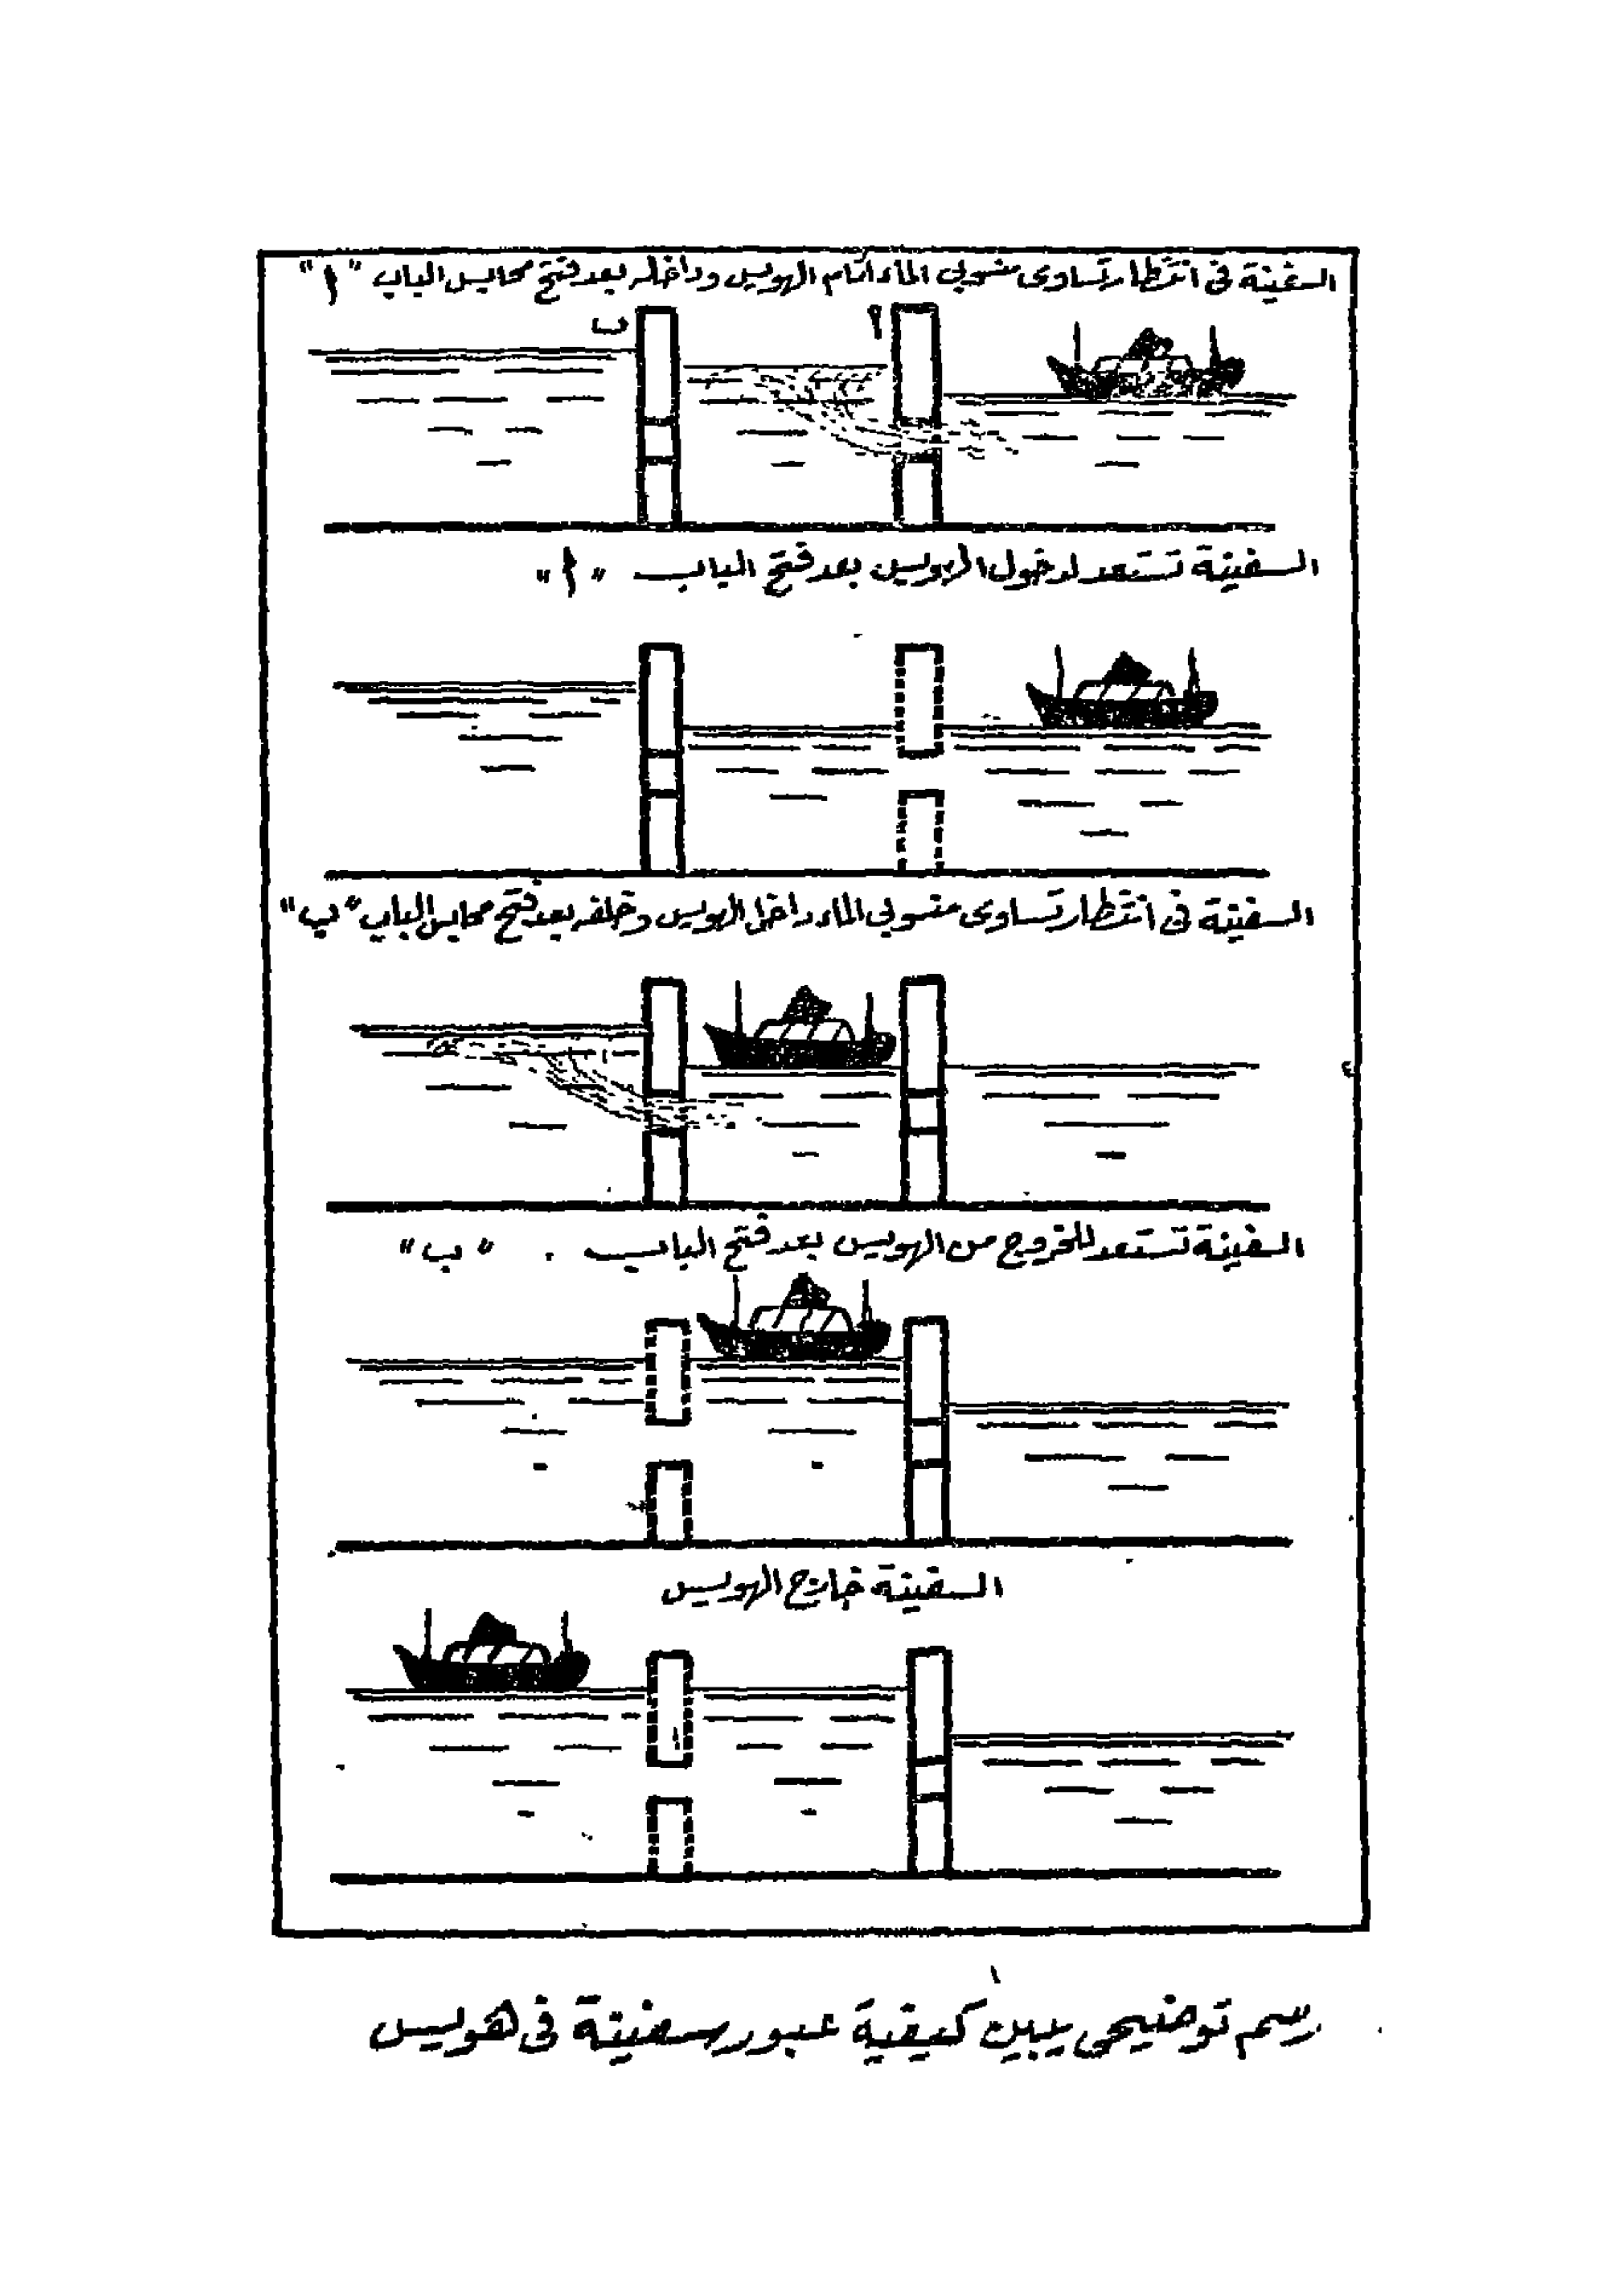 السفينة فى انتظار تساوى منسوبى الماء أمام الهويس وداخله بعد فتح محابس الباب "أ"
ب أ
السفينة تستعد لدخول الهويس بعد فتح الباب "أ"
السفينة فى انتظار تساوى منسوبى الماء داخل الهويس وخلفه بعد فتح محابس الباب "ب"
السفينة تستعد للخروج من الهويس بعد فتح الباب "ب"
السفينة خارج الهويس
رسم توضيحى يبين كيفية عبور سفينة فى هويس